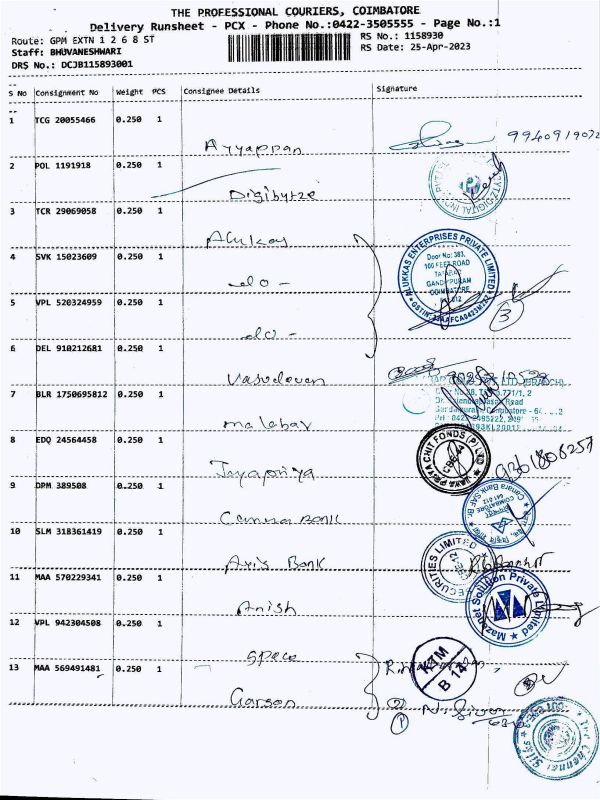 THE PROFESSIONAL COURIERS, COIMBATORE
Delivery Runsheet - PCX - Phone No.:0422-3505555 - Page No.:1
Route: GPM EXTN 1 2 6 8 ST
RS No.: 1158930
Staff: BHUVANESHWARI
RS Date: 25-Apr-2023
DRS No.: DCJB115893001
S No Consignment No Weight PCS Consignee Details Signature
1 TCG 20055466 0.250 1
Ayyappan
2 POL 1191918 0.250 1
Digibytze
3 TCR 29069058 0.250 1
Alukas
ALUKKAS ENTERPRISES PRIVATE LIMITED
Door No: 383,
100 FEET ROAD
TATABAD
GANDHIPURAM
COIMBATORE
4 SVK 15023609 0.250 1
-do-
5 VPL 520324959 0.250 1
-do-
3
6 DEL 910212681 0.250 1
Vasudevan
7 BLR 1750695812 0.250 1
malabar
8 EDQ 24564458 0.250 1
Jayapriya
JAYAPRIYA CHIT FONDS (P) LTD
9 DPM 389508 0.250 1
Canara BANK
Canara Bank
COIMBATORE
641 012
10 SLM 318361419 0.250 1
Axis Bank
SECURITIES LIMITED
11 MAA 570229341 0.250 1
Anish
Mazenet Solution Private Limited
12 VPL 942304508 0.250 1
Space
13 MAA 569491481 0.250 1
KTM
B 14
Garson
1
Chennai Silks